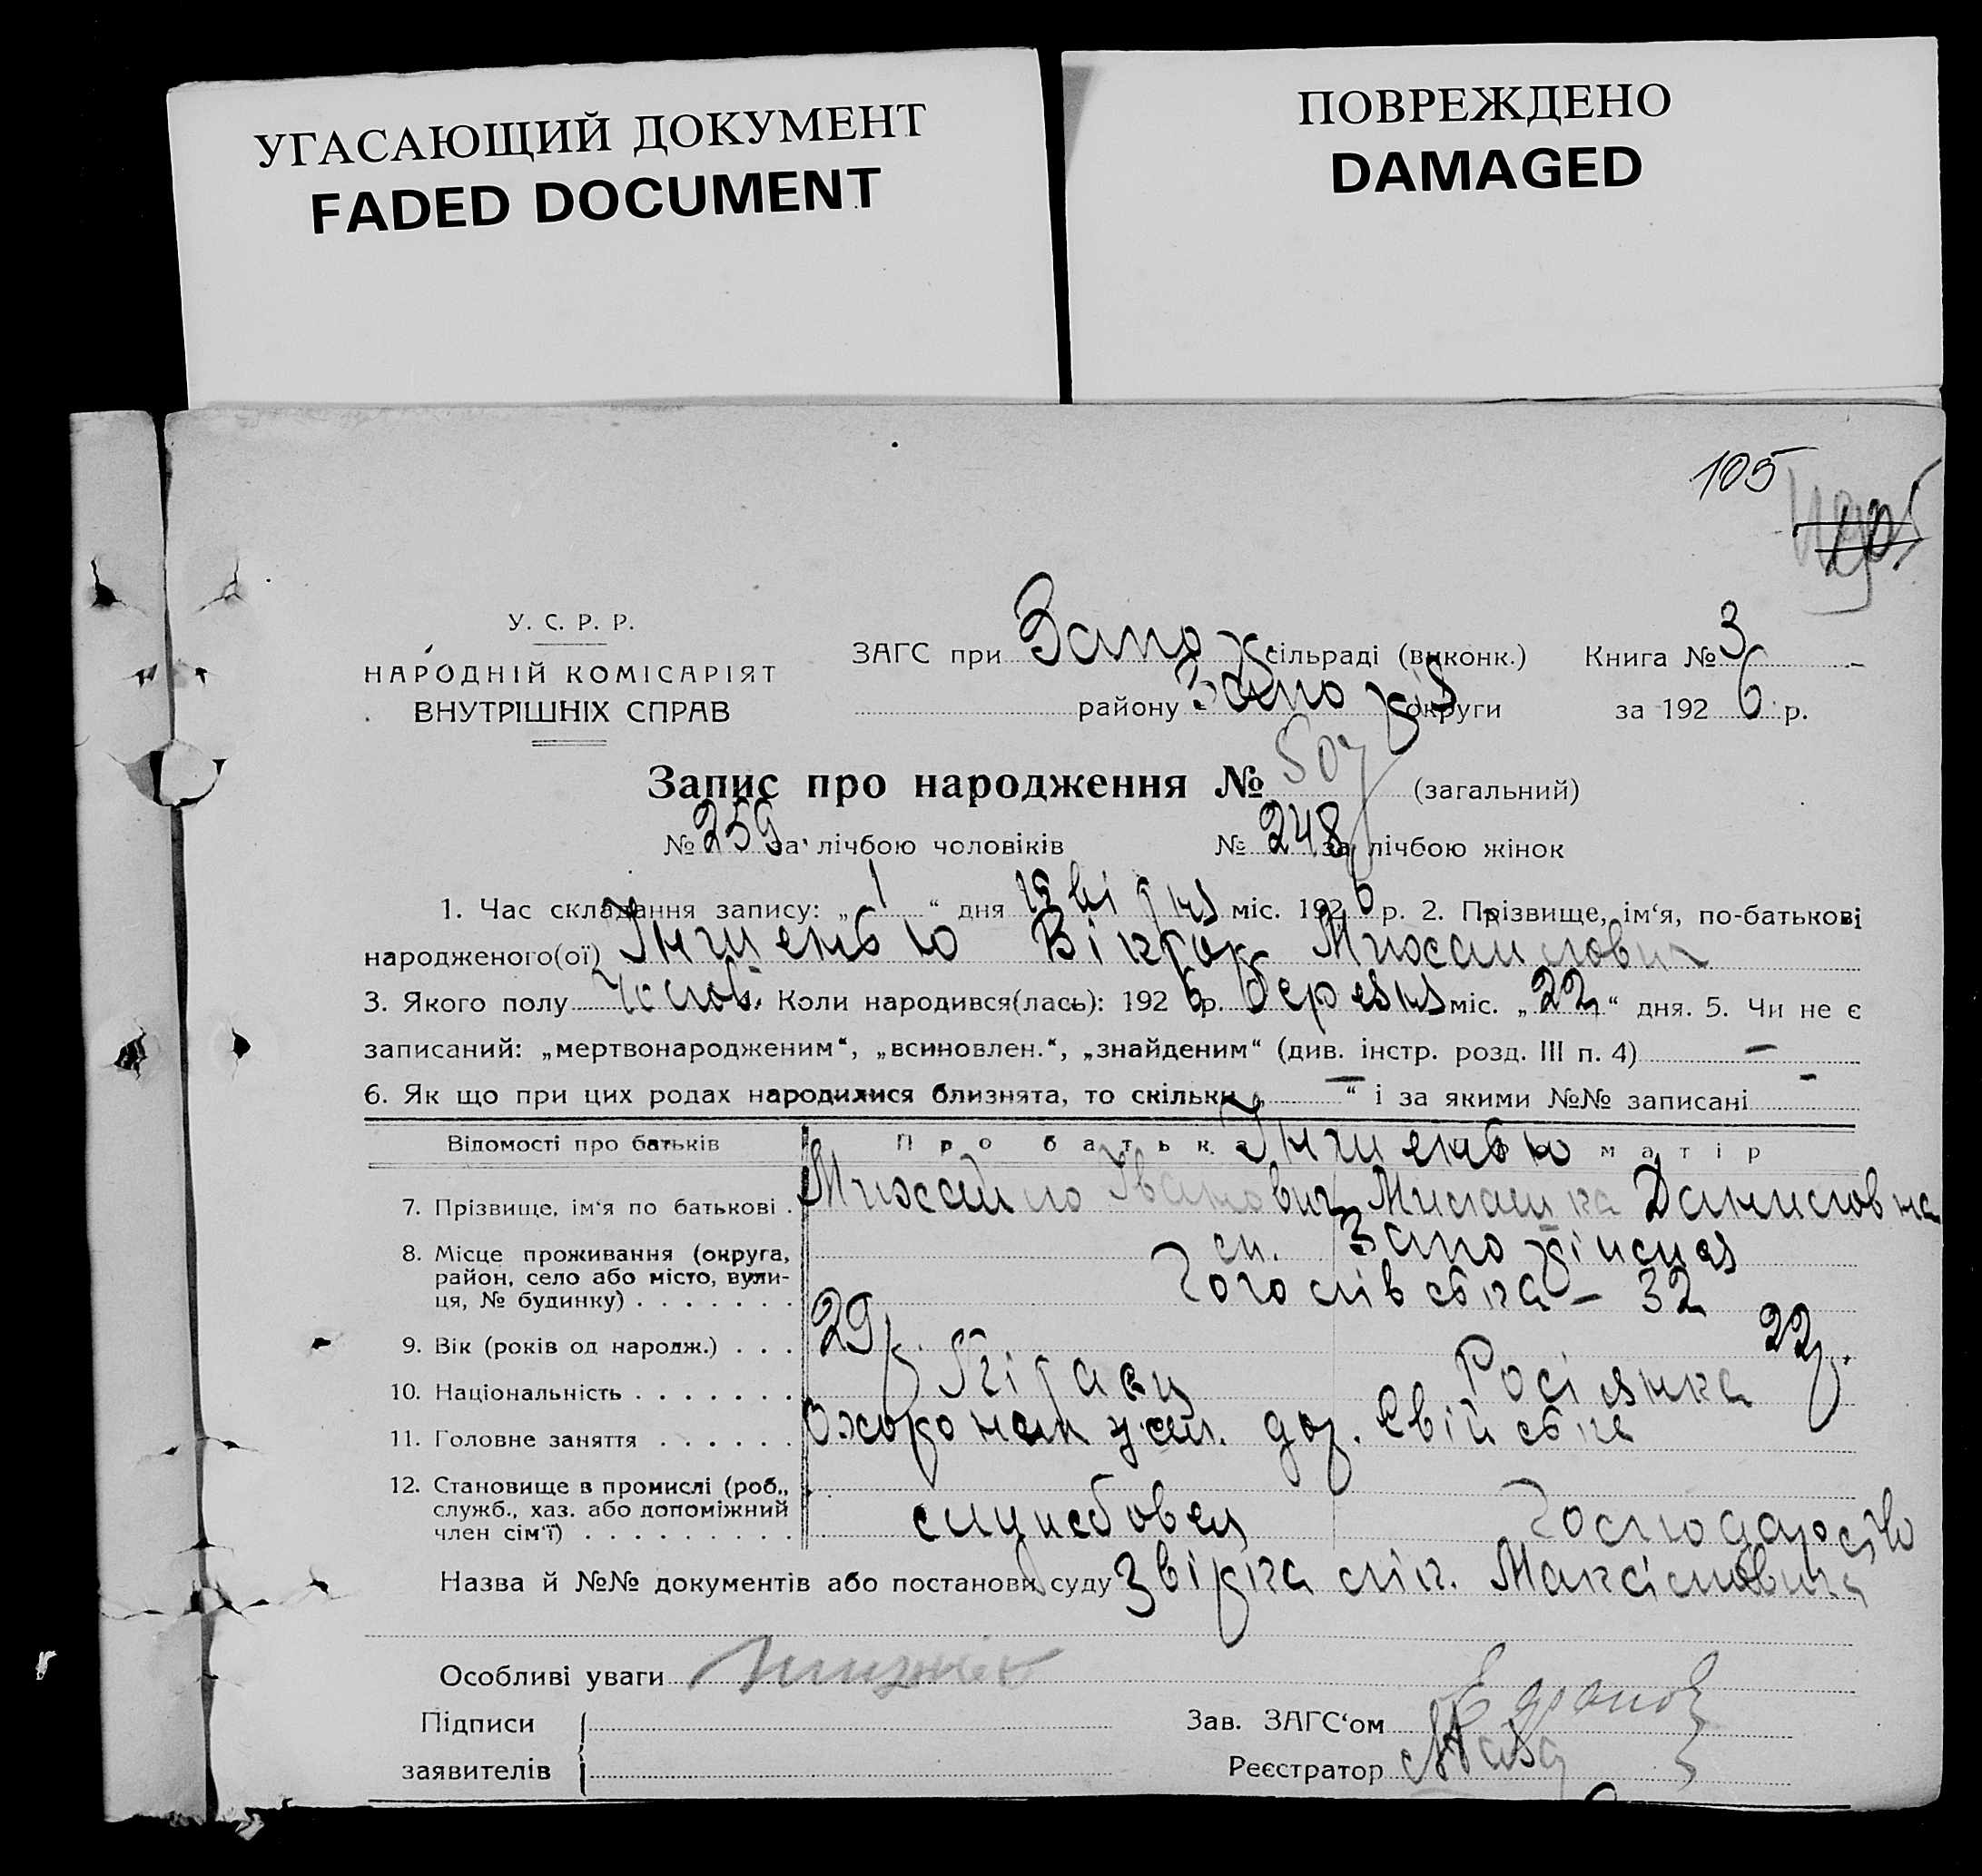 УГАСАЮЩИЙ ДОКУМЕНТ
FADED DOCUMENT
ПОВРЕЖДЕНО
DAMAGED
105
У. С. Р. Р.
НАРОДНІЙ КОМІСАРІЯТ
ВНУТРІШНІХ СПРАВ
ЗАГС при Запо сільраді (виконк.) Книга № 3
району Запо округи за 1926 р.
Запис про народження № 507 (загальний)
№ 259 за лічбою чоловіків № 248 за лічбою жінок
1. Час складання запису: „ 1 “ дня квітня міс. 1926 р. 2. Прізвище, ім‘я, по-батькові
народженого(ої) Віктор Михайлович
3. Якого полу Чолов. Коли народився(лась): 1926 р. березня міс. „ 22 “ дня. 5. Чи не є
записаний: „мертвонародженим“, „всиновлен.“, „знайденим“ (див. інстр. розд. III п. 4) —
6. Як що при цих родах народилися близнята, то скільки „ — “ і за якими №№ записані —
Відомості про батьків Про батька матір
7. Прізвище, ім‘я по батькові . Михайло Іванович Даниловна
8. Місце проживання (округа,
район, село або місто, вули-
ця, № будинку) . . . . . . . — 32
9. Вік (років од народж.) . . . 29 р. 22 р.
10. Національність . . . . . . . Росіянка
11. Головне заняття . . . . . .
12. Становище в промислі (роб.,
служб., хаз. або допоміжний
член сім‘ї) . . . . . . . . . службовец Господарство
Назва й №№ документів або постанови суду лік.
Особливі уваги
Підписи
заявителів
Зав. ЗАГС‘ом
Реєстратор